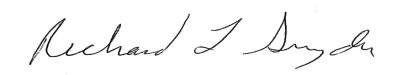 Richard L Snyder